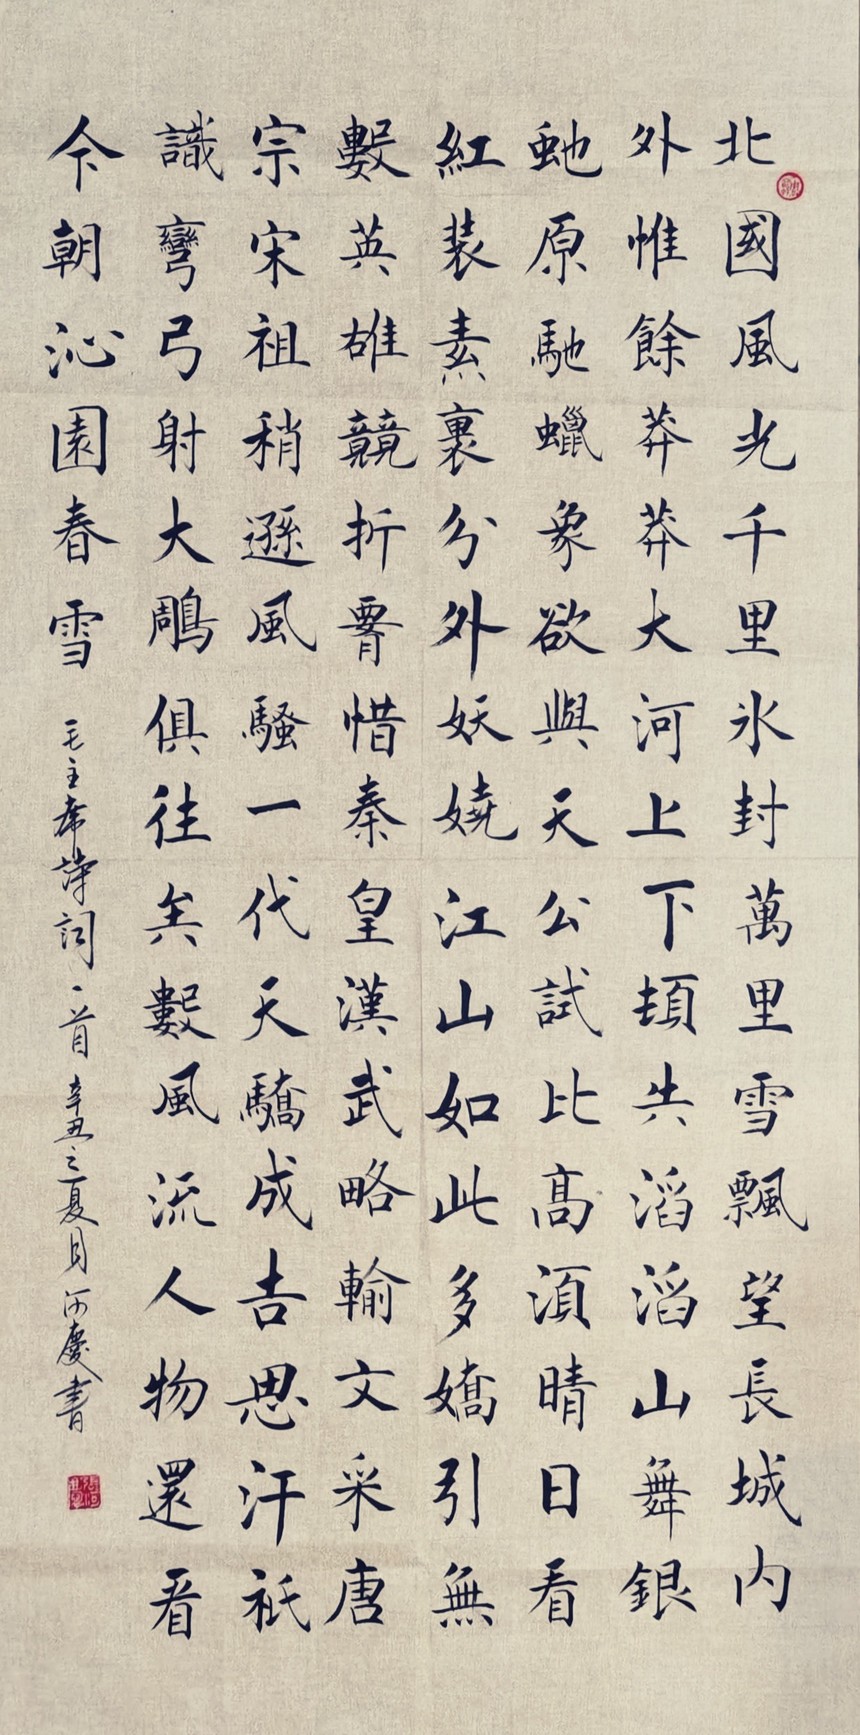 北國風光千里氷封萬里雪飄望長城内
外惟餘莽莽大河上下頓失滔滔山舞銀
虵原馳蠟象欲與天公試比高須晴日看
紅装素裹分外妖嬈江山如此多嬌引無
數英雄競折霄惜秦皇漢武略輸文采唐
宗宋祖稍遜風騷一代天驕成吉思汗祇
識彎弓射大鵰俱往矣數風流人物還看
今朝沁園春雪
毛主席詩詞一首辛丑之夏月河慶書